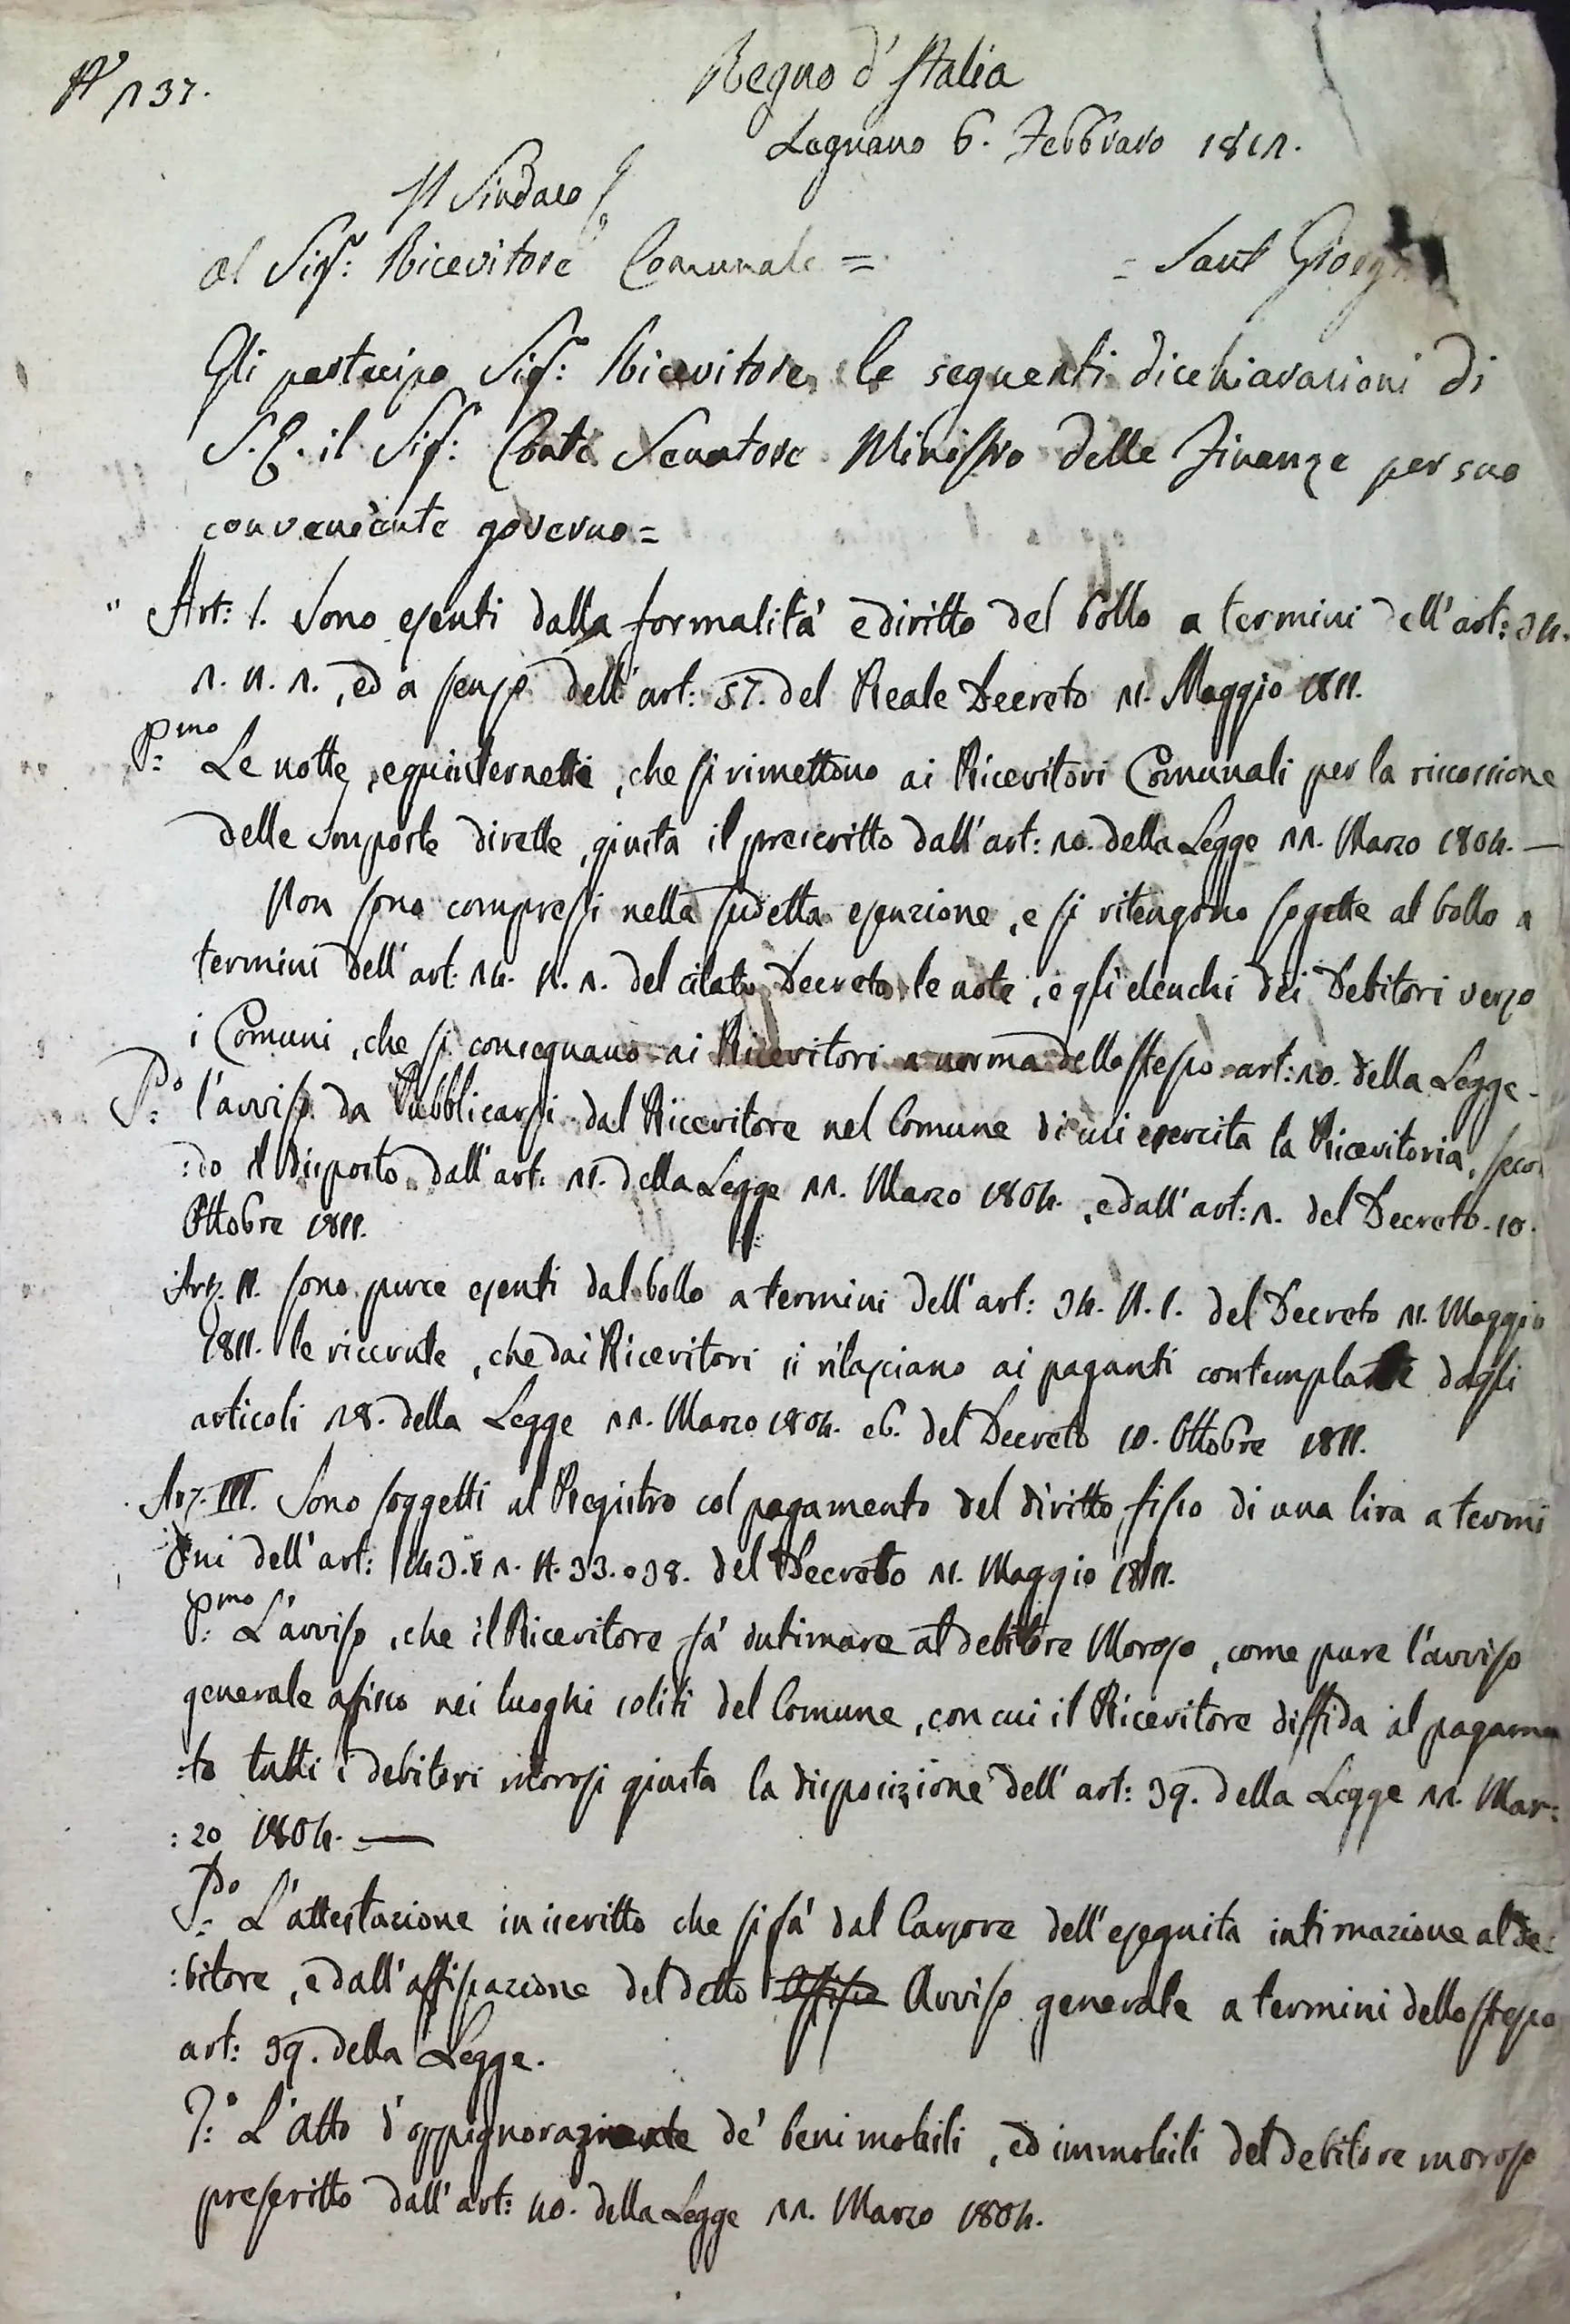 N.° 137.
Regno d'Italia
Legnano 6. Febbraro 1812.
Il Sindaco
al Sig.r: Ricevitore Comunale =
= Sant Giorgio
Gli partecipo Sig.r: Ricevitore le seguenti dicchiarazioni di
S. E. il Sig.r: Conte Senatore Ministro delle Finanze per suo
conveniente governo =
" Art: I. Sono esenti dalla formalità e diritto del bollo a termini dell'art: 34.
N. 1., ed a senso dell'art: 57. del Reale Decreto 21. Maggio 1811.
P:mo Le notte, e quinternetti, che si rimettono ai Ricevitori Comunali per la riscossione
delle imposte dirette, giusta il prescritto dall'art: 20. della Legge 22. Marzo 1804. —
Non sono compresi nella sudetta esenzione, e si ritengono sogette al bollo a
termini dell'art: 14. N. 1. del citato Decreto le note, e gli elenchi dei Debitori verso
i Comuni, che si consegnano ai Ricevitori a norma dello stesso art: 20. della Legge.
S:do l'avviso da Pubblicarsi dal Ricevitore nel Comune di cui esercita la Ricevitoria, secon
:do il disposto dall'art: 21. della Legge 22. Marzo 1804., e dall'art: 1. del Decreto 10.
Ottobre 1811.
Art. II. sono pure esenti dal bollo a termini dell'art: 34. N. 1. del Decreto 21. Maggio
1811. le ricevute, che dai Ricevitori si rilasciano ai paganti contemplate dagli
articoli 28. della Legge 22. Marzo 1804. e 6. del Decreto 10. Ottobre 1811.
Art. III. Sono soggetti al Registro col pagamento del diritto fisso di una lira a termi
ni dell'art: 143. § 1. N. 33. e 38. del Decreto 21. Maggio 1811.
P:mo L'avviso, che il Ricevitore fà intimare al debitore Moroso, come pure l'avviso
generale afisso nei luoghi soliti del Comune, con cui il Ricevitore diffida al pagamen
:to tutti i debitori morosi giusta la disposizione dell'art: 39. della Legge 22. Mar:
:zo 1804. —
S:do L'attestazione in iscritto che si fà dal Cursore dell'eseguita intimazione al de:
:bitore, e dall'affissazione del detto Affisso Avviso generale a termini dello stesso
art: 39. della Legge.
3:° L'Atto d'oppignorazione de' beni mobili, ed immobili del debitore moroso
prescritto dall'art: 40. della Legge 22. Marzo 1804.